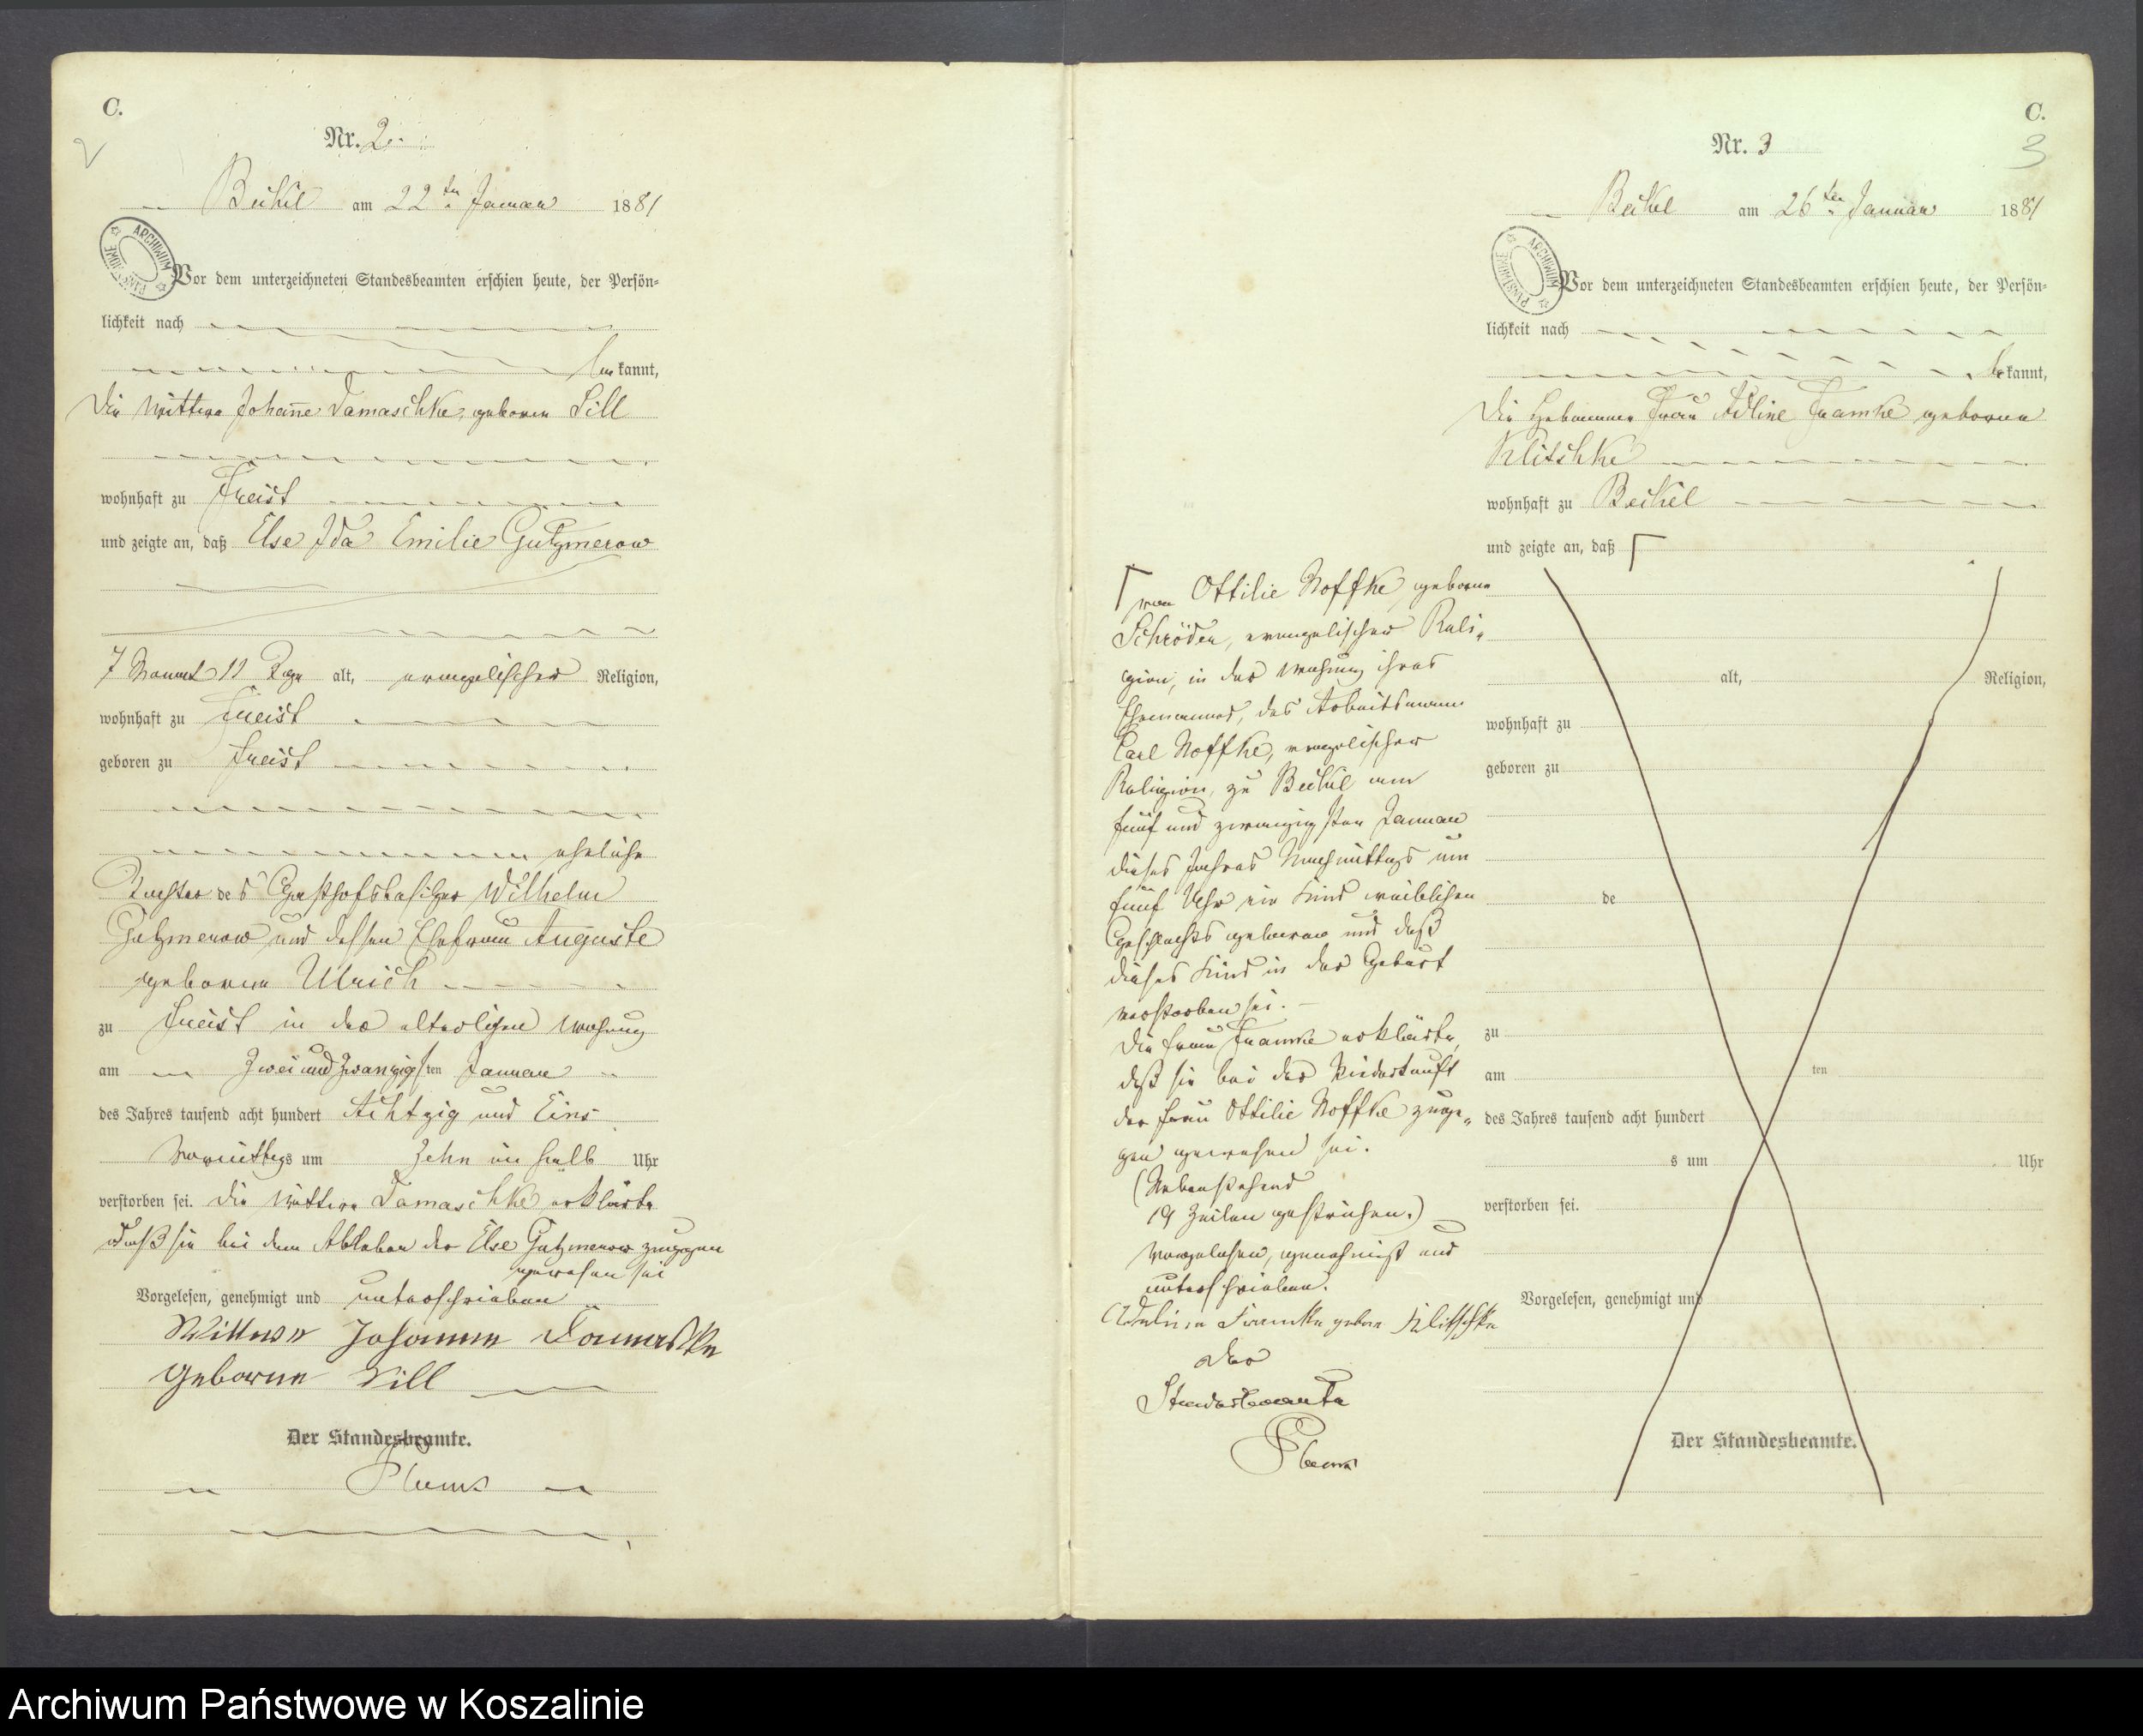 C.
2
Nr. 2.
Beckel am 22ten Januar 1881
ARCHIWUM PAŃSTWOWE
Vor dem unterzeichneten Standesbeamten erschien heute, der Persön-
lichkeit nach
bekannt,
die Wittwe Johanne Damaschke, geborene Sill
wohnhaft zu Freist
und zeigte an, daß Else Ida Emilie Gutzmerow
7 Monat 11 Tage alt, evangelischer Religion,
wohnhaft zu Freist
geboren zu Freist
eheliche
Tochter des Gasthofsbesitzer Wilhelm
Gutzmerow und dessen Ehefrau Auguste
geborene Ulrich
zu Freist in der elterlichen Wohnung
am Zwei und zwanzigsten Januar
des Jahres tausend acht hundert Achtzig und Eins
Vormittags um Zehn ein halb Uhr
verstorben sei. Die Wittwe Damaschke erklärte
daß sie bei dem Ableben der Else Gutzmerow zugegen
gewesen sei
Vorgelesen, genehmigt und unterschrieben
Wittwe Johanne Damaschke
Geborne Sill
Der Standesbeamte.
C.
3
Nr. 3
Beckel am 26ten Januar 1881
ARCHIWUM PAŃSTWOWE
Vor dem unterzeichneten Standesbeamten erschien heute, der Persön-
lichkeit nach
bekannt,
die Hebamme Frau Adline Framke geborene
Klitschke
wohnhaft zu Beckel
und zeigte an, daß
von Ottilie Noffke, geborene
Schröder, evangelischer Reli-
gion, in der Wohnung ihres
Ehemannes, des Arbeitsmann
Carl Noffke, evangelischer
Religion, zu Beckel am
fünf und zwanzigsten Januar
dieses Jahres Nachmittags um
fünf Uhr ein Kind weiblichen
Geschlechts geboren und daß
dieses Kind in der Geburt
verstorben sei.
Die Frau Framke erklärte,
daß sie bei der Niederkunft
der Frau Ottilie Noffke zuge-
gen gewesen sei.
(Nebenstehend
19 Zeilen gestrichen.)
Vorgelesen, genehmigt und
unterschrieben.
Adeline Framke geborne Klitschke
Der
Standesbeamte
alt, Religion,
wohnhaft zu
geboren zu
de
zu
am ten
des Jahres tausend acht hundert
s um Uhr
verstorben sei.
Vorgelesen, genehmigt und
Der Standesbeamte.
Archiwum Państwowe w Koszalinie